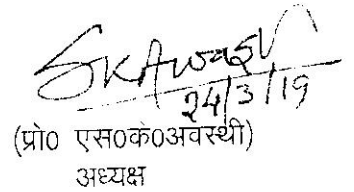 SKAwasthi
24/3/19
(प्रो० एस०के०अवस्थी)
अध्यक्ष